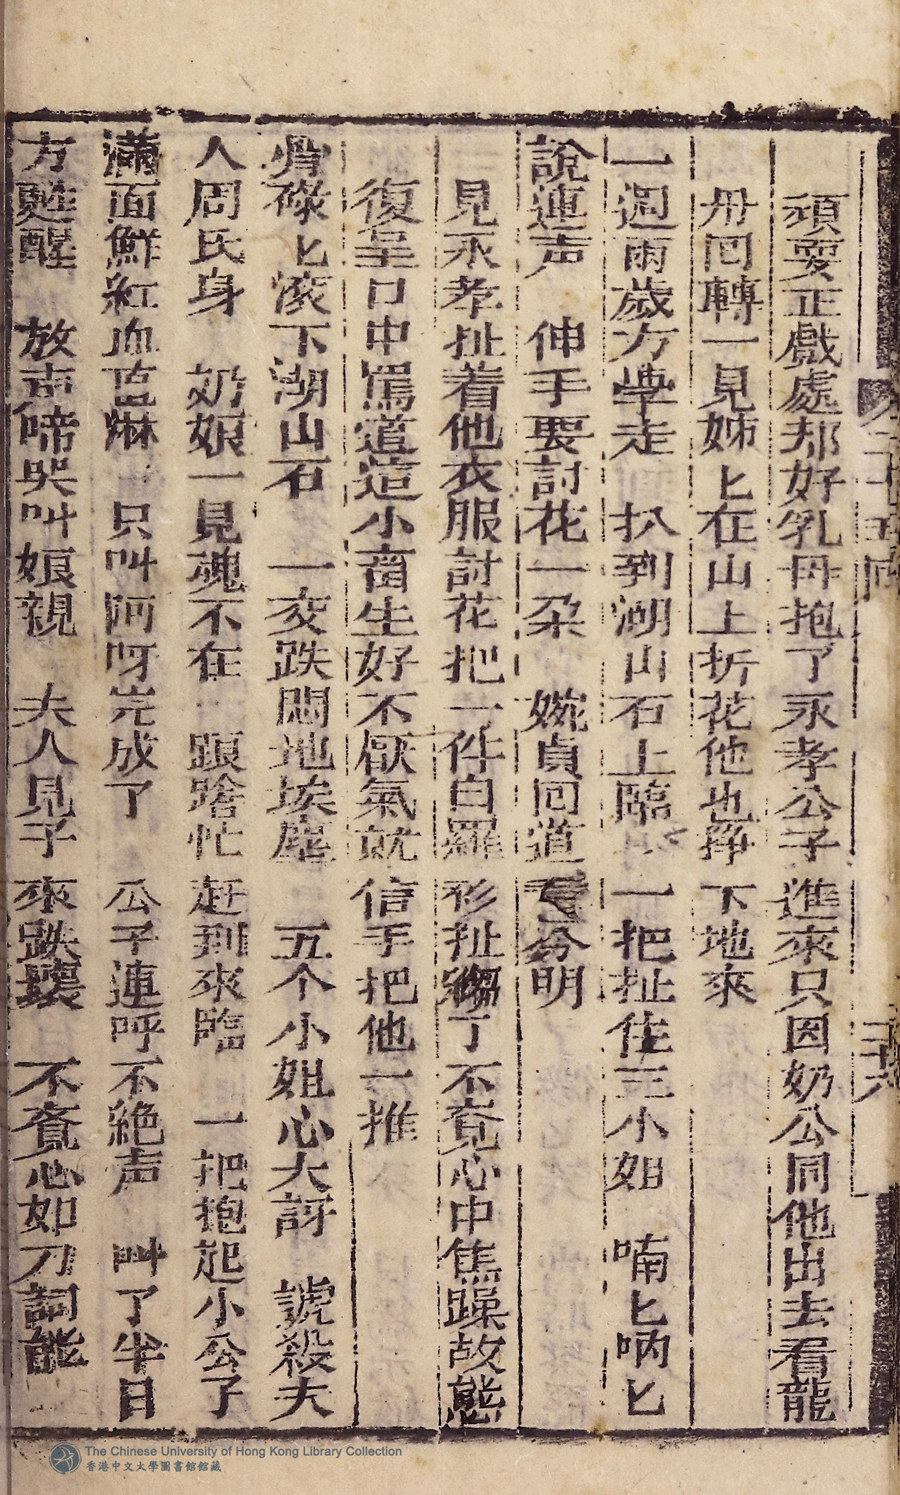 頑耍正戲處却好乳母抱了永孝公子進來只因奶公同他出去看龍
舟囘轉一見姊匕在山上折花他也掙下地來
一週兩歲方學走　扒到湖山石上臨　一把扯住三小姐　喃匕吶匕
說蓮声　伸手要討花一朶　婉貞囘道分明
見永孝扯着他衣服討花把一件白羅衫扯了不覔心中焦躁故態
復呈口中罵道這小畜生好不厭氣就信手把他一推
骨碌匕滚下湖山石　一交跌悶地埃塵　五个小姐心大訝　諕殺夫
人周氏身　奶娘一見魂不在　踉蹌忙赶到來臨　一把抱起小公子
滿面鮮紅血淋　只叫阿呀完成了　公子連呼不絶声　叫了半日
方甦醒　放声啼哭叫娘親　夫人見子來跌壞　不覔心如刀
二十五囘
The Chinese University of Hong Kong Library Collection
香港中文大學圖書館館藏